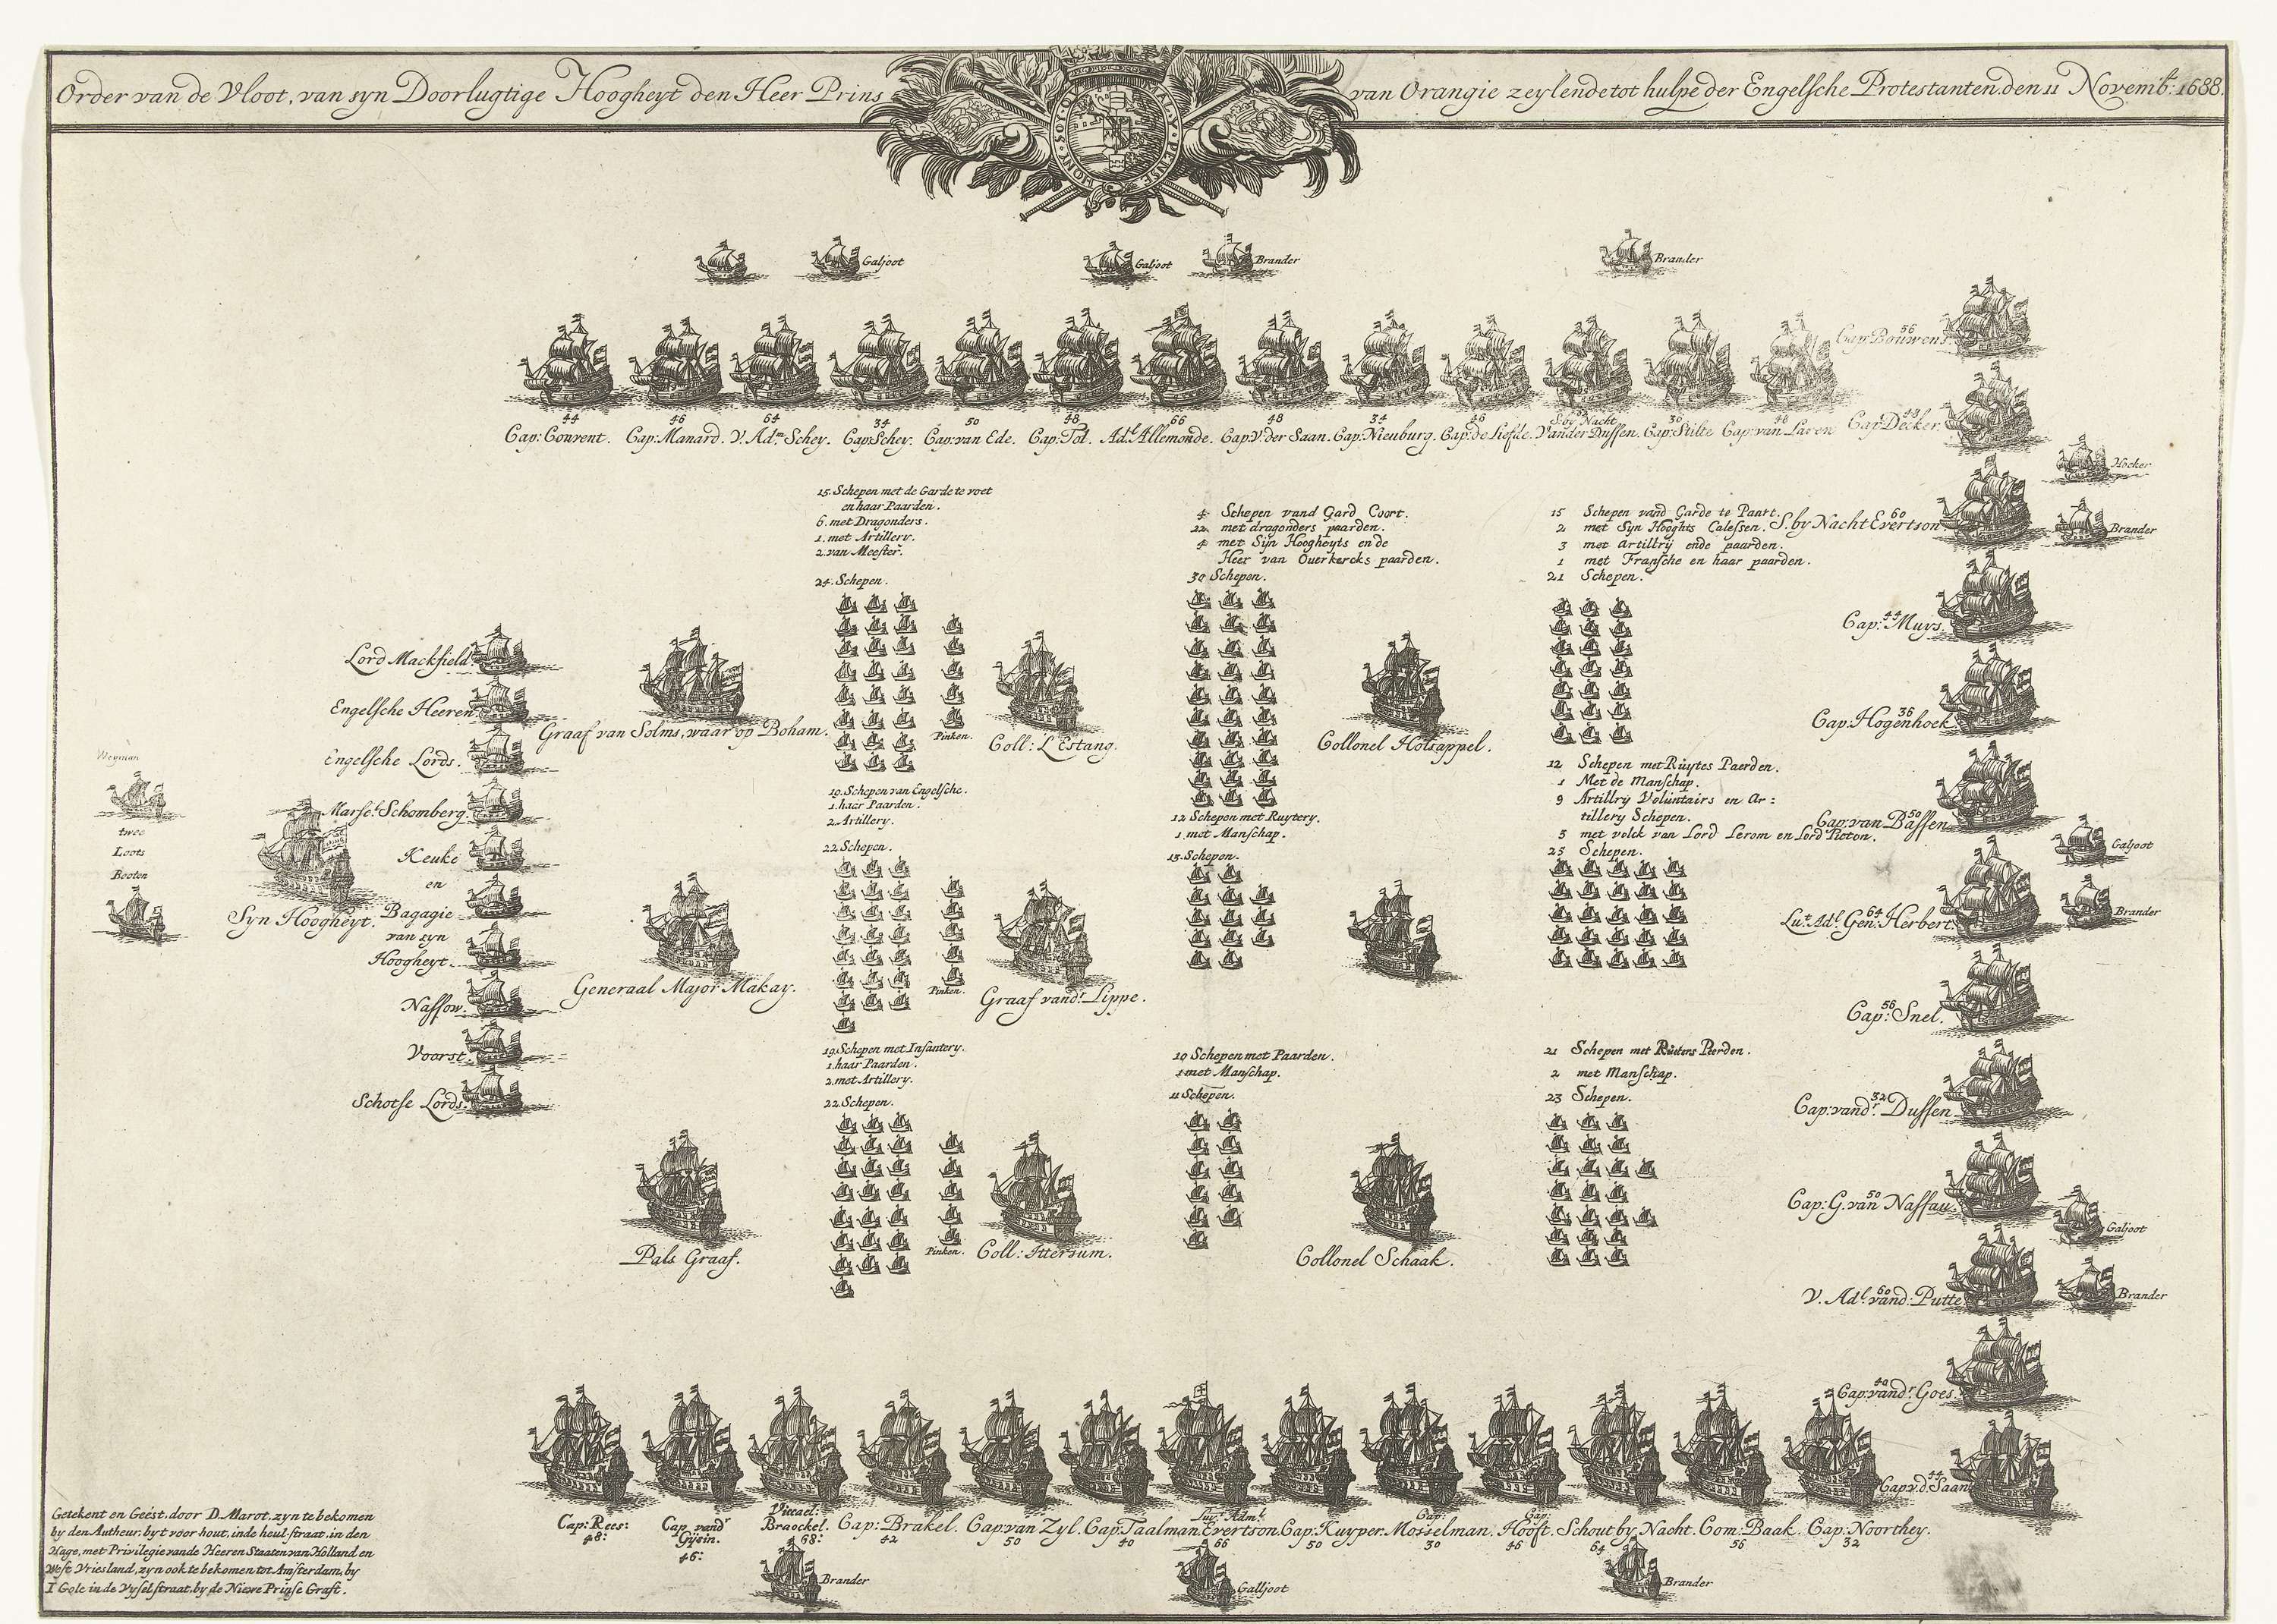 Order van de Vloot, van syn Doorlugtige Hoogheyt den Heer Prins van Orangie zeylende tot hulpe der Engelsche Protestanten, den 11 Novemb: 1688.
HON·SOY·QUI·MAL·Y·PENSE
Galjoot
Galjoot
Brander
Brander
44
Cap: Convent.
46
Cap: Manard.
64
V. Adm. Schey.
34
Cap: Schey.
50
Cap: van Ede.
48
Cap: Tol.
66
Ad.l Allemonde.
48
Cap: V. der Saan.
34
Cap: Nieuburg.
46
Cap: de Liefde.
S. by Nacht
Vander Dussen.
36
Cap: Stilte
40
Cap: van Laren
56
Cap: Bouwens.
48
Cap: Decker.
Hoeker
60
S. by Nacht Evertson
Brander
44
Cap: Muys.
36
Cap: Hogenhoek
50
Cap: van Bassen
Galjoot
64
Lu.t Ad.l Gen: Herbert.
Brander
56
Cap: Snel.
32
Cap: vand.r Dussen
50
Cap: G. van Nassau.
Galjoot
60
V. Ad.l vand: Putte
Brander
40
Cap: vand.r Goes.
44
Cap: v.d. Saan
15. Schepen met de Garde te voet
en haar Paarden.
6. met Dragonders.
1. met Artillery.
2. van Meester.
24. Schepen.
4 Schepen vand Gard Coort.
22 met dragonders paarden.
4 met Syn Hoogheyts en de
Heer van Ouerkercks paarden.
30 Schepen.
15 Schepen vand Garde te Paart.
2 met Syn Hooghts Calessen.
3 met artillrij ende paarden.
1 met Fransche en haar paarden.
21 Schepen.
Lord Mackfield
Engelsche Heeren
Engelsche Lords.
Marse.l Schomberg.
Keuke
en
Bagagie
van syn
Hoogheyt.
Nassow.
Voorst.
Schotse Lords.
Weyman
twee
Loots
Booten
Syn Hoogheyt.
Graaf van Solms, waar op Boham.
Pinken.
Coll: L'Estang.
Collonel Holsappel.
19. Schepen van Engelsche.
1. haar Paarden.
2. Artillery.
22 Schepen.
12 Schepen met Ruytery.
1. met Manschap.
13. Schepen.
12 Schepen met Ruytes Paerden.
1 Met de Manschap.
9 Artillrij Voluntairs en Ar:
tillery Schepen.
3 met volck van Lord Lerom en Lord Pieton.
25 Schepen.
Generaal Major Makay.
Pinken.
Graaf vand.r Lippe.
19. Schepen met Infantery.
1. haar Paarden.
2. met Artillery.
22. Schepen.
10 Schepen met Paarden.
1 met Manschap.
11 Schepen.
21 Schepen met Ruiters Perden.
2 met Manschap.
23 Schepen.
Pals Graaf.
Pinken.
Coll: Ittersum.
Collonel Schaak.
Cap: Rees:
48:
Cap vand.r
Gijsin.
46:
Viceael:
Braeckel.
68:
Cap: Brakel.
42
Cap: van Zyl.
50
Cap: Taalman.
40
Evertson.
66
Cap: Kuyper.
50
Cap:
Mosselman.
30
Cap:
Hooft.
46
Schout by Nacht.
64
Com: Baak.
56
Cap: Noorthey.
32
Brander
Galljoot
Brander
Getekent en Geëst. door D. Marot. zyn te bekomen
by den Autheur. by t voor hout, inde houl-straat, in den
Hage, met Privilegie vande Heeren Staaten van Holland en
West Vriesland, zyn ook te bekomen tot Amsterdam, by
I Gole in de Vysel straat, by de Niewe Prinse Graft.